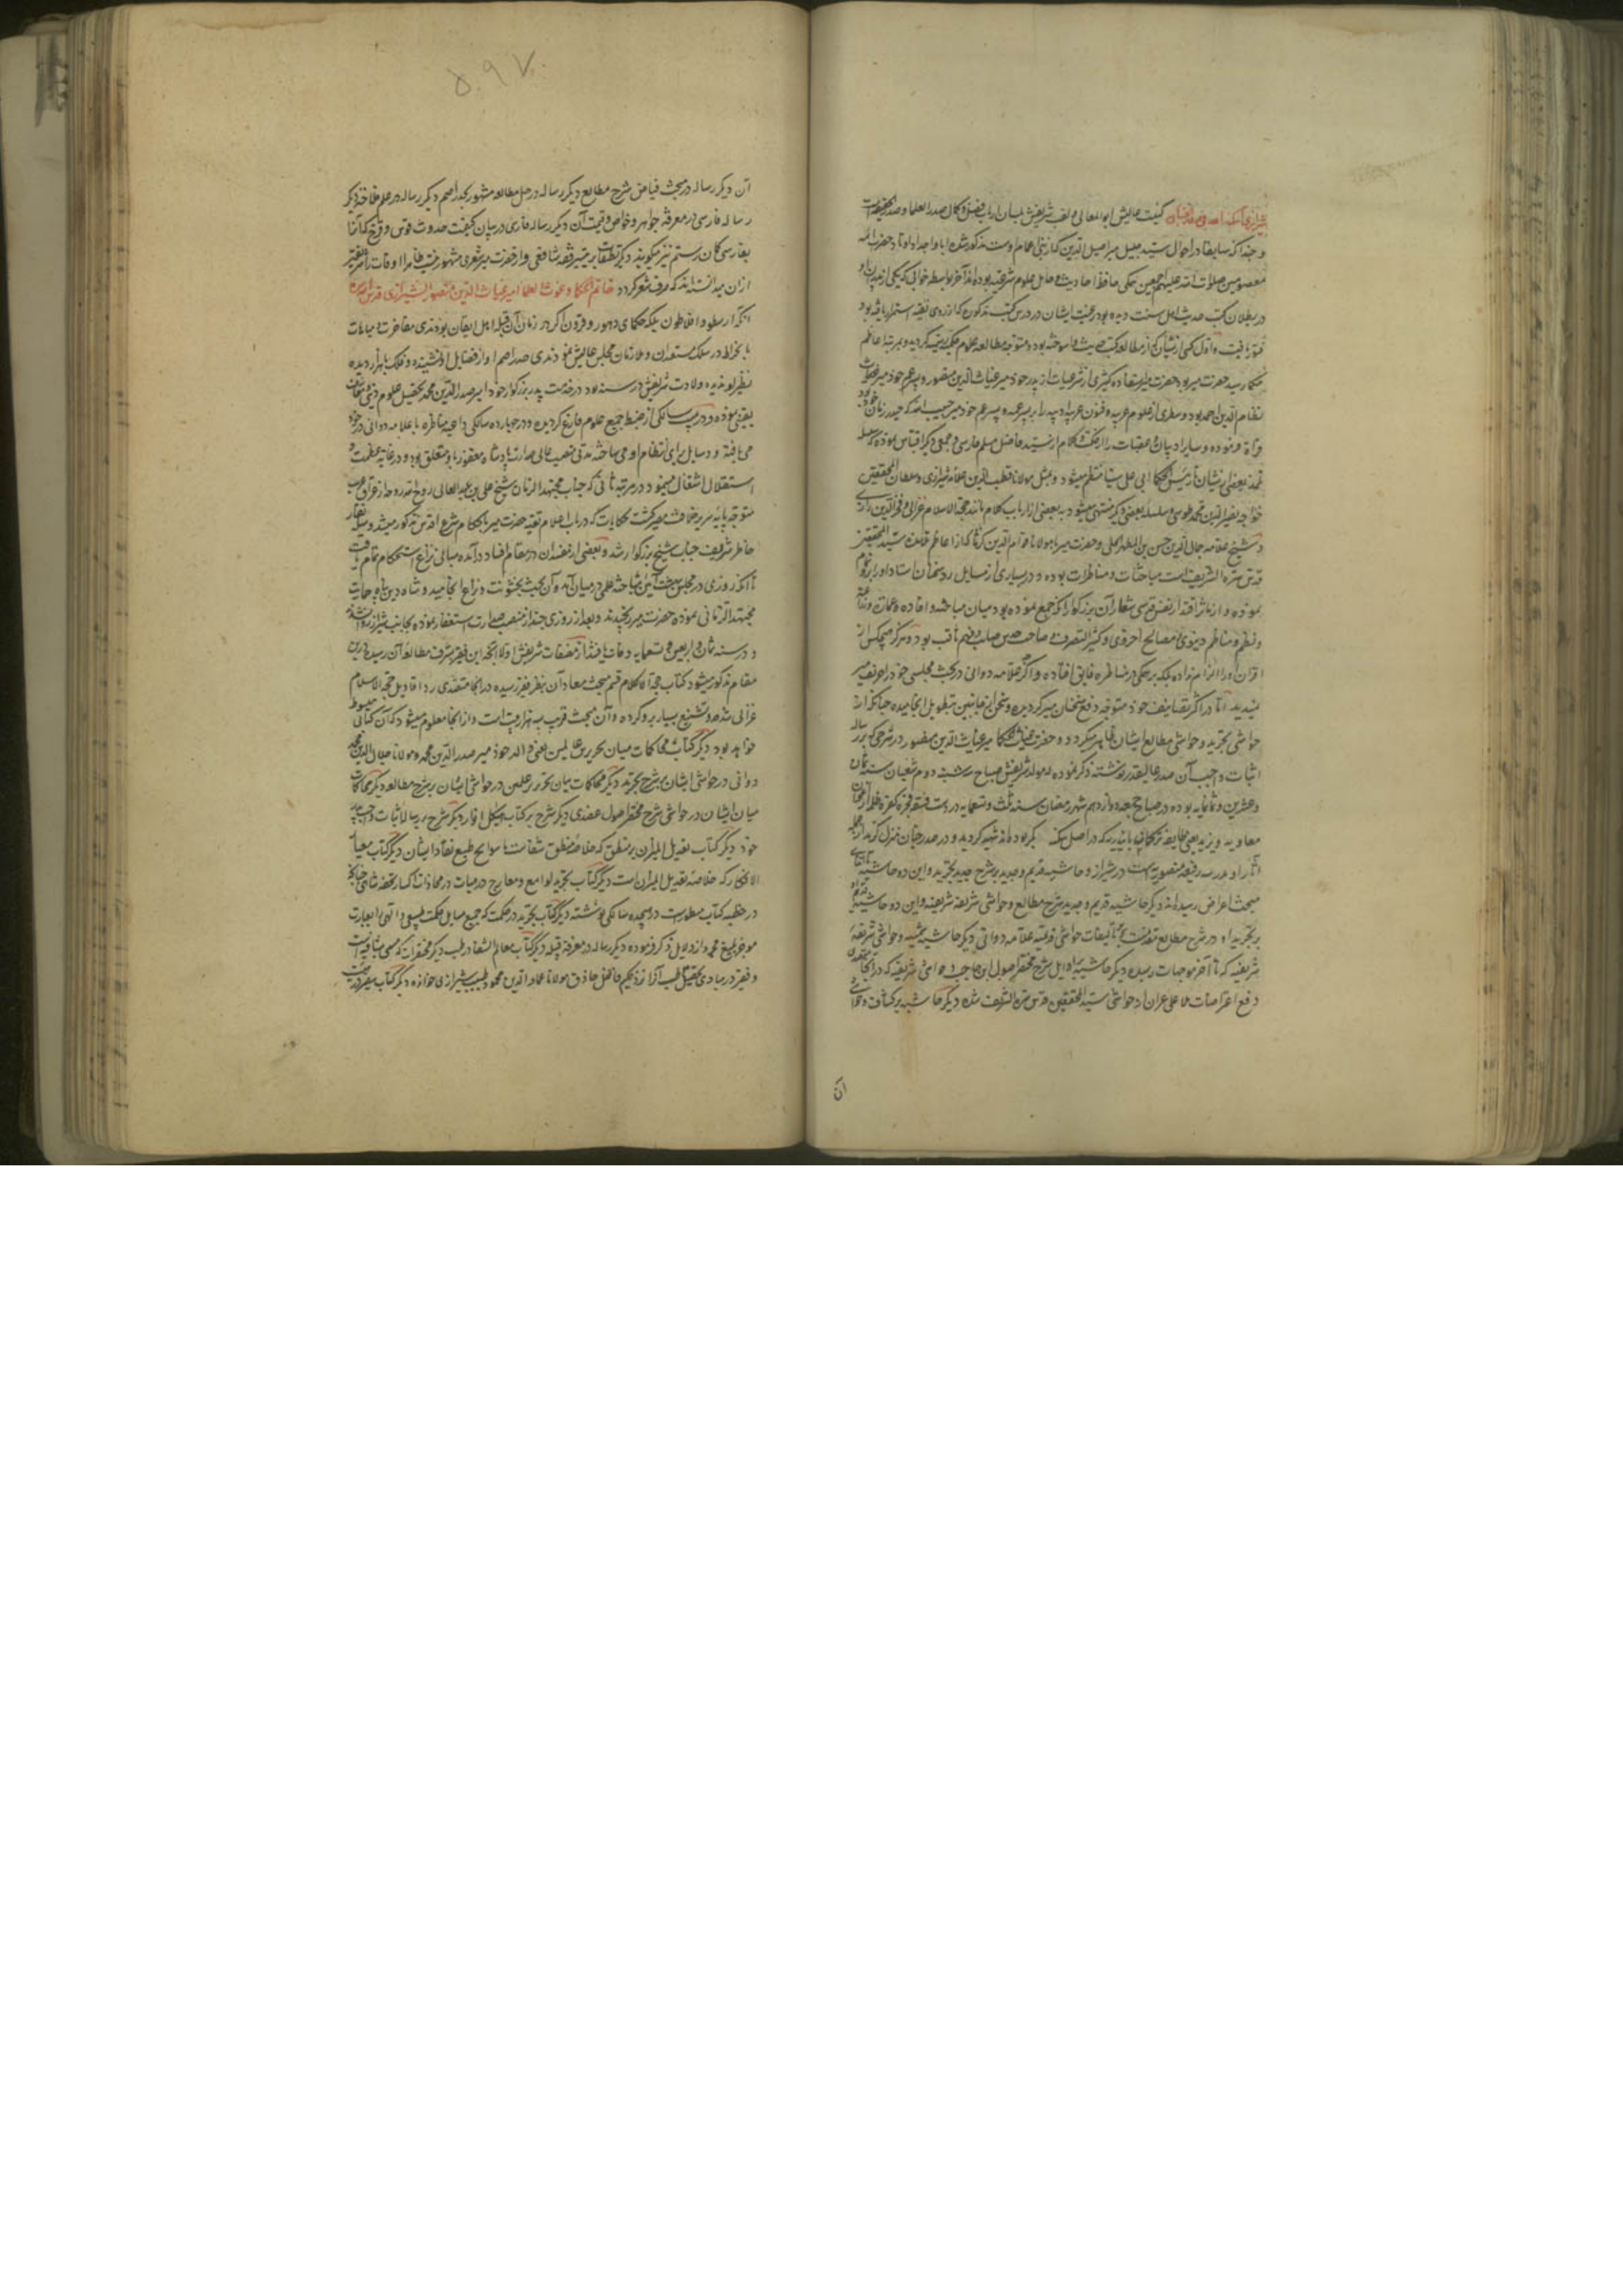 شیرازی اسکنه الله فی صدر الجنان کنیت عالیش ابو المعالی و لقب شریفش بلسان ارباب فضل و کمال صدر العلما و صدر الحقیقه است
و چنانکه سابقا در احوال سید جلیل میر اصیل الدین که از بنی اعمام اوست مذکور شده آبا و اجداد او تا حضرات ائمه
معصومین صلوات الله علیهم اجمعین همگی حافظ احادیث و حامل علوم شرعیه بوده‌اند آخر بواسطه خوابی که یکی از
در بطلان کتب حدیث اهل سنت دیده بود رغبت ایشان در درس کتب مذکوره که از روی تقیه استمرار یافته بود
فتور یافت و اول کسی از ایشان که از مطالعه کتب حدیث وا سوخته بود و متوجه مطالعه علوم حکمیه گردید و بمرتبه اعاظم
حکما رسید حضرت میر بود حضرت میر استفاده کثیری از شرعیات از پدر خود میر غیاث الدین منصور و پسر عم خود میر
نظام الدین احمد بود و سطری از علوم عربیه و فنون ادبیه را بر پسر عمه و پسر عم خود میر حبیب الله که حیدر زمان خود بود
قراءة فرموده و سایر ادبیات و عقلیات را از حکمت و کلام از سید فاضل مسلم فارسی و جمعی دیگر اقتباس نموده که سلسله
تلمذ بعضی از ایشان تا رئیس الحکما ابی علی سینا منتظم میشود و بمثل مولانا قطب الدین علامه شیرازی و سلطان المحققین
خواجه نصیر الدین محمد طوسی و سلسله بعضی دیگر منتهی میشود به بعضی از ارباب کلام مانند حجة الاسلام غزالی و فخر الدین رازی
و شیخ علامه جمال الدین حسن بن المطهر الحلی و حضرت میر با مولانا قوام الدین که از اعاظم تلامذه سید المحققین
قدس سره الشریف است مباحثات و مناظرات بوده و در بسیاری از مسایل رد سخنان استاد او را بر
نموده و از مآثر اقتدار نفس قدسی شعار آن بزرگوار آنکه جمع نموده بود میان مباحثه و افاده و عمارت
و نظم مناظم دنیوی و مصالح اخروی و کثیر التصرف و صاحب حدس صائب و فهم ثاقب بود و هرگز هیچکس از
اقران او را الزام نداده بلکه بر همگی در مناظره فایق افتاده و اگر علامه دوانی در بحث مجلسی خود را حریف میر
نمیدید اما در اکثر تصانیف خود متوجه دفع سخنان میر گردیده و سخن از جانبین بتطویل انجامیده چنانکه از
حواشی تجرید و حواشی مطالع ایشان ظاهر میگردد و حضرت غیاث الحکما میر غیاث الدین منصور در شرحی که بر رساله
اثبات واجب آن صدر عالیقدر نوشته ذکر نموده که مولد شریفش صباح سه شنبه دوم شعبان سنه ثمان
و عشرین و ثمانمایه بوده و در صباح جمعه دوازدهم شهر رمضان سنه ثلث و تسعمایه در دست فسقه فجره کفره ظلمه از
معاویه و یزید یعنی طایفه ترکمان بایندریه که در اصل بوده‌اند شهید گردید و در صدر جنان منزل گزید از جمله
آثار او مدرسه رفیعه منصوریه است در شیراز و حاشیه قدیم و جدید بر شرح جدید تجرید و این دو حاشیه تا اثنای
مبحث اعراض رسیده‌اند دیگر حاشیه قدیم و جدید شرح مطالع و حواشی شریفه شریفیه و این دو حاشیه
بر تجرید او در شرح مطالع تعلیقات حواشی قدیمه علامه دوانی دیگر حاشیه شمسیه و حواشی شریفه
شریفیه که تا آخر موجهات رسیده دیگر حاشیه بر اوایل شرح مختصر اصول ابن حاجب و حواشی شریفیه که در آنجا
دفع اعتراضات ملا علی عران از حواشی سید المحققین قدس سره الشریف شده دیگر حاشیه بر کشاف و
ان
۵۹۷
آن دیگر رساله در مبحث فیاض شرح مطالع دیگر رساله در حل مغالطه مشهور بجذر اصم دیگر رساله در علم فلاحت دیگر
رساله فارسی در معرفت جواهر و خواص و قیمت آن دیگر رساله فارسی در بیان کیفیت حدوث قوس و قزح که آنرا
بفارسی کمان رستم نیز میگویند دیگر تعلیقات بر تیسیر فقه شافعی و از حضرت میر شعری مشهور نیست ظاهرا اوقات را شریفتر
از آن میدانسته‌اند که صرف شعر گردد خاتم الحکما و غوث العلما امیر غیاث الدین منصور الشیرازی قدس الله سره
آنکه ارسطو و افلاطون بلکه حکمای دهور و قرون اگر در زمان آن قبله اهل ایقان بودندی مفاخرت و مباهات
بانخراط در سلک مستعدان و ملازمان مجلس عالیش نمودندی صدر اصم آوازه فضایل او شنیده و فلک با هزار دیده
نظیر او ندیده ولادت شریفش در سنه بود در خدمت پدر بزرگوار خود امیر صدر الدین محمد بتحصیل علوم دینی و معارف
یقینی نموده و در بیست سالگی از ضبط جمیع علوم فارغ گردیده و در چهارده سالگی داعیه مناظره با علامه دوانی در خود
می یافته و رسایل برای انتظام او می ساخته مدتی منصب عالی صدارت پادشاه مغفور باو متعلق بود و در غایت عظمت و
استقلال اشتغال مینمود و در مرتبه ثانی که جناب مجتهد الزمان شیخ علی بن عبد العالی روح الله روحه از عراق عرب
متوجه پایه سریر خلافت مصیر گشت حکایات که در باب اعلام تقید حضرت میر باحکام شرع اقدس مذکور میشد وسیله نقار
خاطر شریف جناب شیخ بزرگوار شد و بعضی از مفسدان در مقام افساد درآمده مبانی نزاع استحکام تمام یافت
تا آنکه روزی در مجلس بهشت آئین مباحثه علمی در میان آمد و آن بحث بخشونت و نزاع انجامید و شاه دین پناه حمایت
مجتهد الزمانی نموده حضرت میر رنجیدند و بعد از روزی چند از منصب صدارت استعفا نموده بجانب شیراز روانه شد
و در سنه ثمان و اربعین و تسعمایه وفات یافتند از مصنفات شریفش اولا آنچه این فقیر بشرف مطالعه آن رسیده درین
مقام مذکور میشود کتاب حجة الکلام قسم مبحث معاد آن بنظر فقیر رسیده در آنجا متصدی رد اقاویل حجة الاسلام
غزالی شده و تشنیع بسیار برو کرده و آن مبحث قریب به هزار بیت است و از آنجا معلوم میشود که آن کتابی مبسوط
خواهد بود دیگر کتاب محاکمات میان تحریرین عالمین یعنی والد خود میر صدر الدین محمد و مولانا جلال الدین محمد
دوانی در حواشی ایشان بر شرح تجرید دیگر محاکمات میان در حواشی ایشان بر شرح مطالع دیگر محاکمات
میان ایشان در حواشی شرح مختصر اصول عضدی دیگر شرح بر کتاب هیاکل انوار دیگر شرح بر رساله اثبات واجب پدر
خود دیگر کتاب تعدیل المیزان بر منطق که خلاصه منطق شفاست با سوانح طبع نقاد ایشان دیگر کتاب معیار
الافکار که خلاصه تعدیل المیزان است دیگر کتاب تجرید لوامع و معارج در هیئات در محاذات تحفه شاهی چنانچه
در خطبه کتاب مسطور است در هیجده سالگی نوشته دیگر کتاب تجرید در حکمت که جمیع مسایل حکمت طبیعی و الهی را بعبارت
موجز بلیغ مجرد از دلایل ذکر فرموده دیگر رساله در معرفت قبله دیگر کتاب معالم الشفا در طب دیگر مختصر آن که مسمی بشافیه است
و فقیر در مبادی تحصیل طب آنرا نزد حکیم فاضل حاذق مولانا عماد الدین محمود طبیب شیرازی خوانده دیگر کتاب سفیر